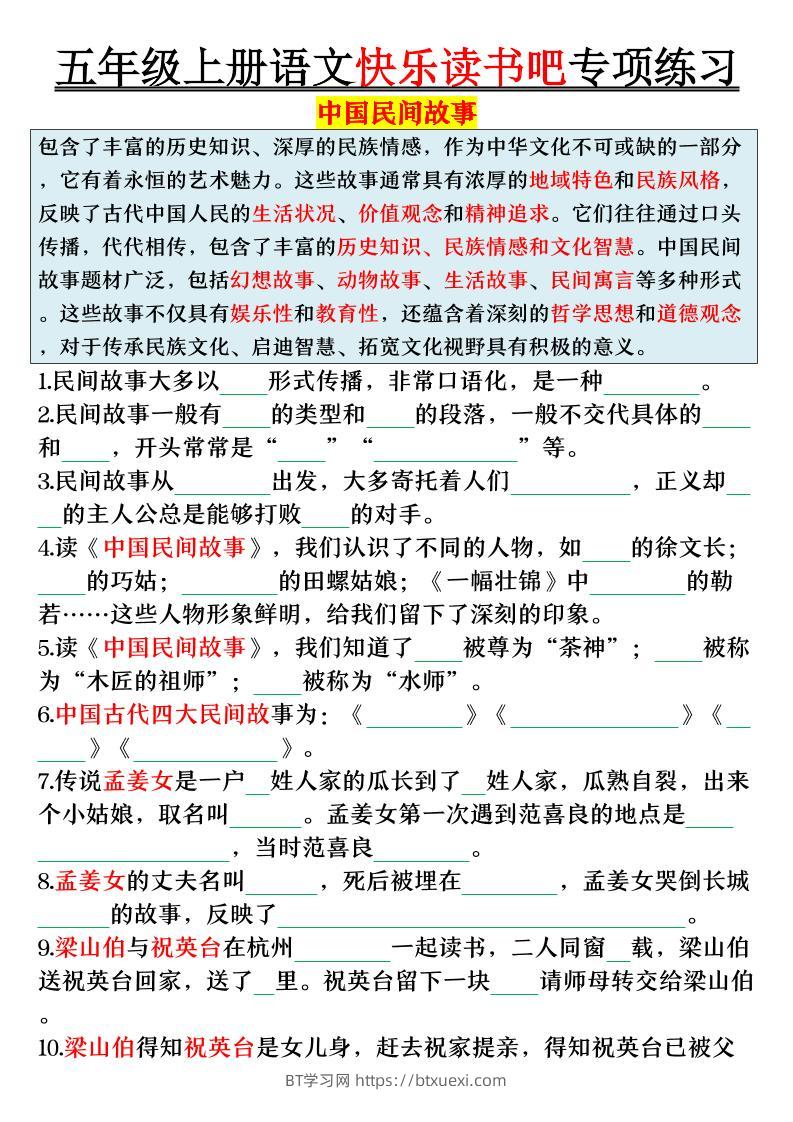 五年级上册语文快乐读书吧专项练习
中国民间故事
包含了丰富的历史知识、深厚的民族情感，作为中华文化不可或缺的一部分
，它有着永恒的艺术魅力。这些故事通常具有浓厚的地域特色和民族风格，
反映了古代中国人民的生活状况、价值观念和精神追求。它们往往通过口头
传播，代代相传，包含了丰富的历史知识、民族情感和文化智慧。中国民间
故事题材广泛，包括幻想故事、动物故事、生活故事、民间寓言等多种形式
。这些故事不仅具有娱乐性和教育性，还蕴含着深刻的哲学思想和道德观念
，对于传承民族文化、启迪智慧、拓宽文化视野具有积极的意义。
1.民间故事大多以____形式传播，非常口语化，是一种________。
2.民间故事一般有____的类型和____的段落，一般不交代具体的____
和____，开头常常是“____”“____________”等。
3.民间故事从________出发，大多寄托着人们__________，正义却__
__的主人公总是能够打败____的对手。
4.读《中国民间故事》，我们认识了不同的人物，如____的徐文长；
____的巧姑；________的田螺姑娘；《一幅壮锦》中________的勒
若……这些人物形象鲜明，给我们留下了深刻的印象。
5.读《中国民间故事》，我们知道了____被尊为“茶神”；____被称
为“木匠的祖师”；____被称为“水师”。
6.中国古代四大民间故事为：《________》《______________》《__
____》《____________》。
7.传说孟姜女是一户__姓人家的瓜长到了__姓人家，瓜熟自裂，出来
个小姑娘，取名叫______。孟姜女第一次遇到范喜良的地点是____
________________，当时范喜良________。
8.孟姜女的丈夫名叫______，死后被埋在________，孟姜女哭倒长城
______的故事，反映了__________________________________。
9.梁山伯与祝英台在杭州________一起读书，二人同窗__载，梁山伯
送祝英台回家，送了__里。祝英台留下一块____请师母转交给梁山伯
。
10.梁山伯得知祝英台是女儿身，赶去祝家提亲，得知祝英台已被父
BT学习网 https://btxuexi.com